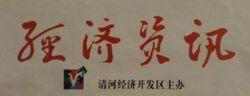 经济资讯
清河经济开发区主办